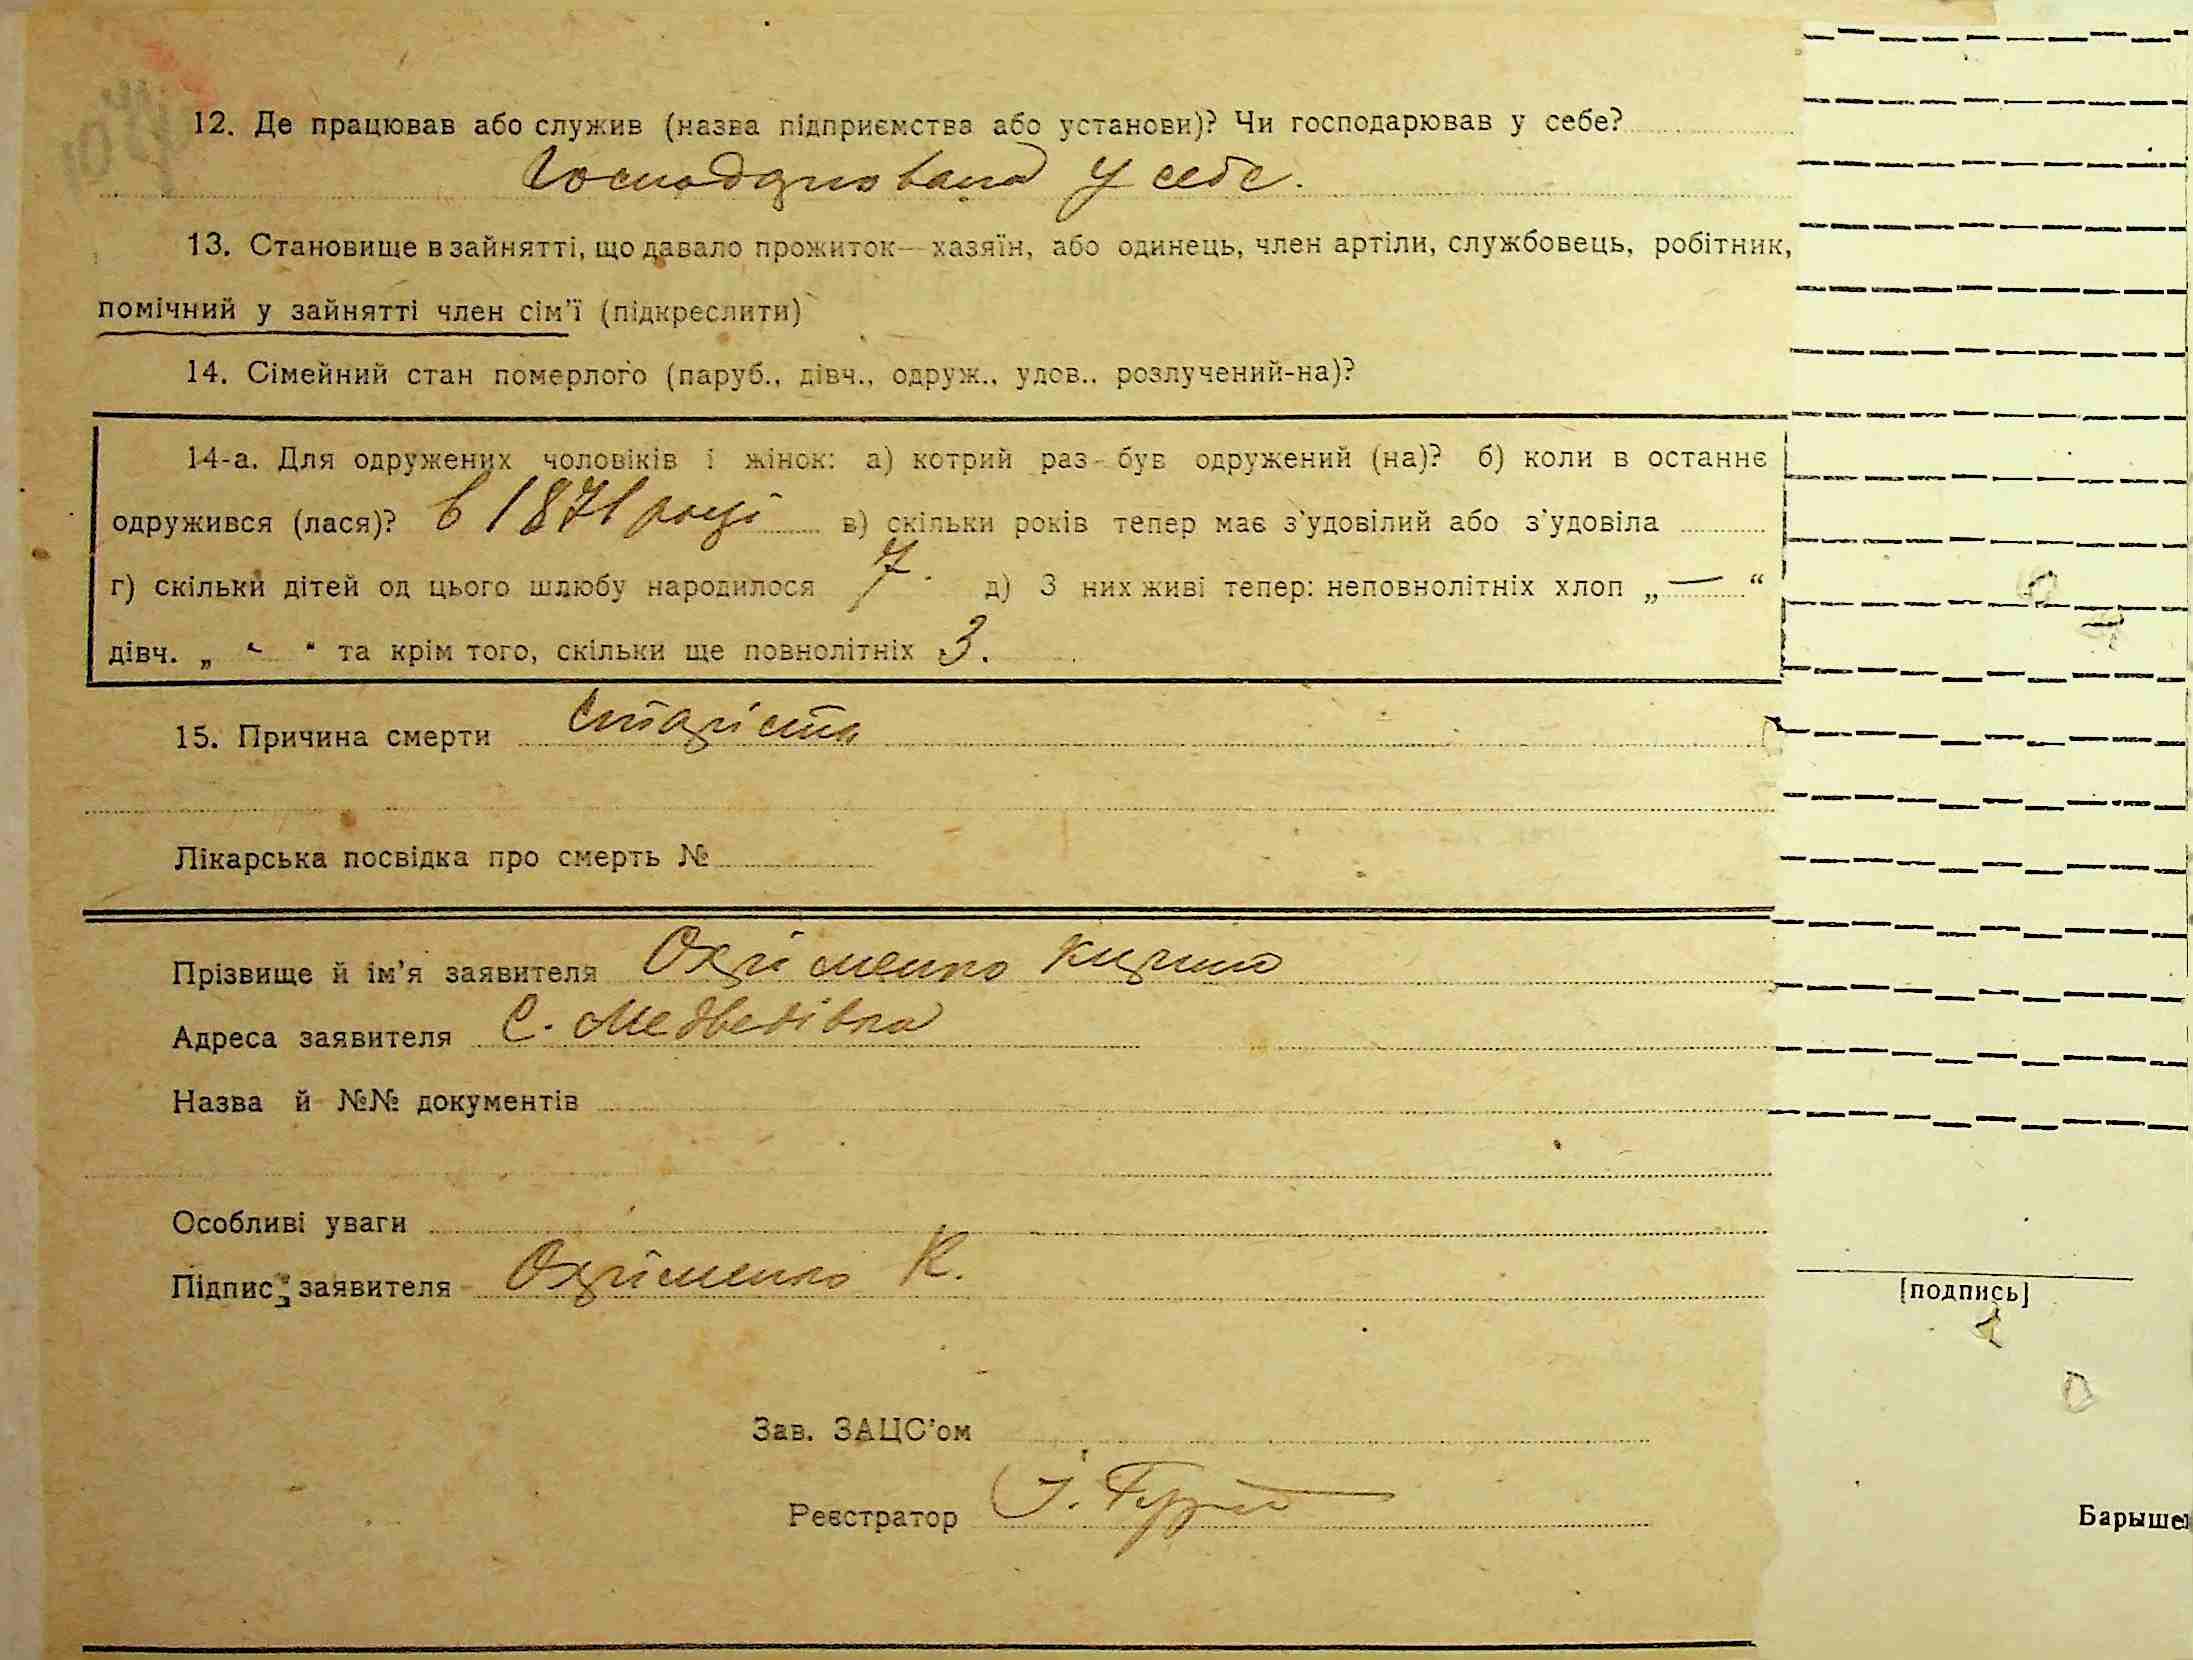 12. Де працював або служив (назва підприємства або установи)? Чи господарював у себе?
Господарювала у себе.
13. Становище в зайнятті, що давало прожиток—хазяїн, або одинець, член артіли, службовець, робітник,
помічний у зайнятті член сім'ї (підкреслити)
14. Сімейний стан померлого (паруб., дівч., одруж., удов., розлучений-на)?
14-а. Для одружених чоловіків і жінок: а) котрий раз був одружений (на)? б) коли в останнє
одружився (лася)? в 1871 році в) скільки років тепер має з'удовілий або з'удовіла
г) скільки дітей од цього шлюбу народилося 7. д) З них живі тепер: неповнолітніх хлоп „ — “
дівч. „ - “ та крім того, скільки ще повнолітніх 3.
15. Причина смерти старість
Лікарська посвідка про смерть №
Прізвище й ім'я заявителя Охріменко Кирило
Адреса заявителя С. Медведівка
Назва й №№ документів
Особливі уваги
Підпис заявителя Охріменко К.
[подпись]
Зав. ЗАЦС'ом
Реєстратор І.
Барыше